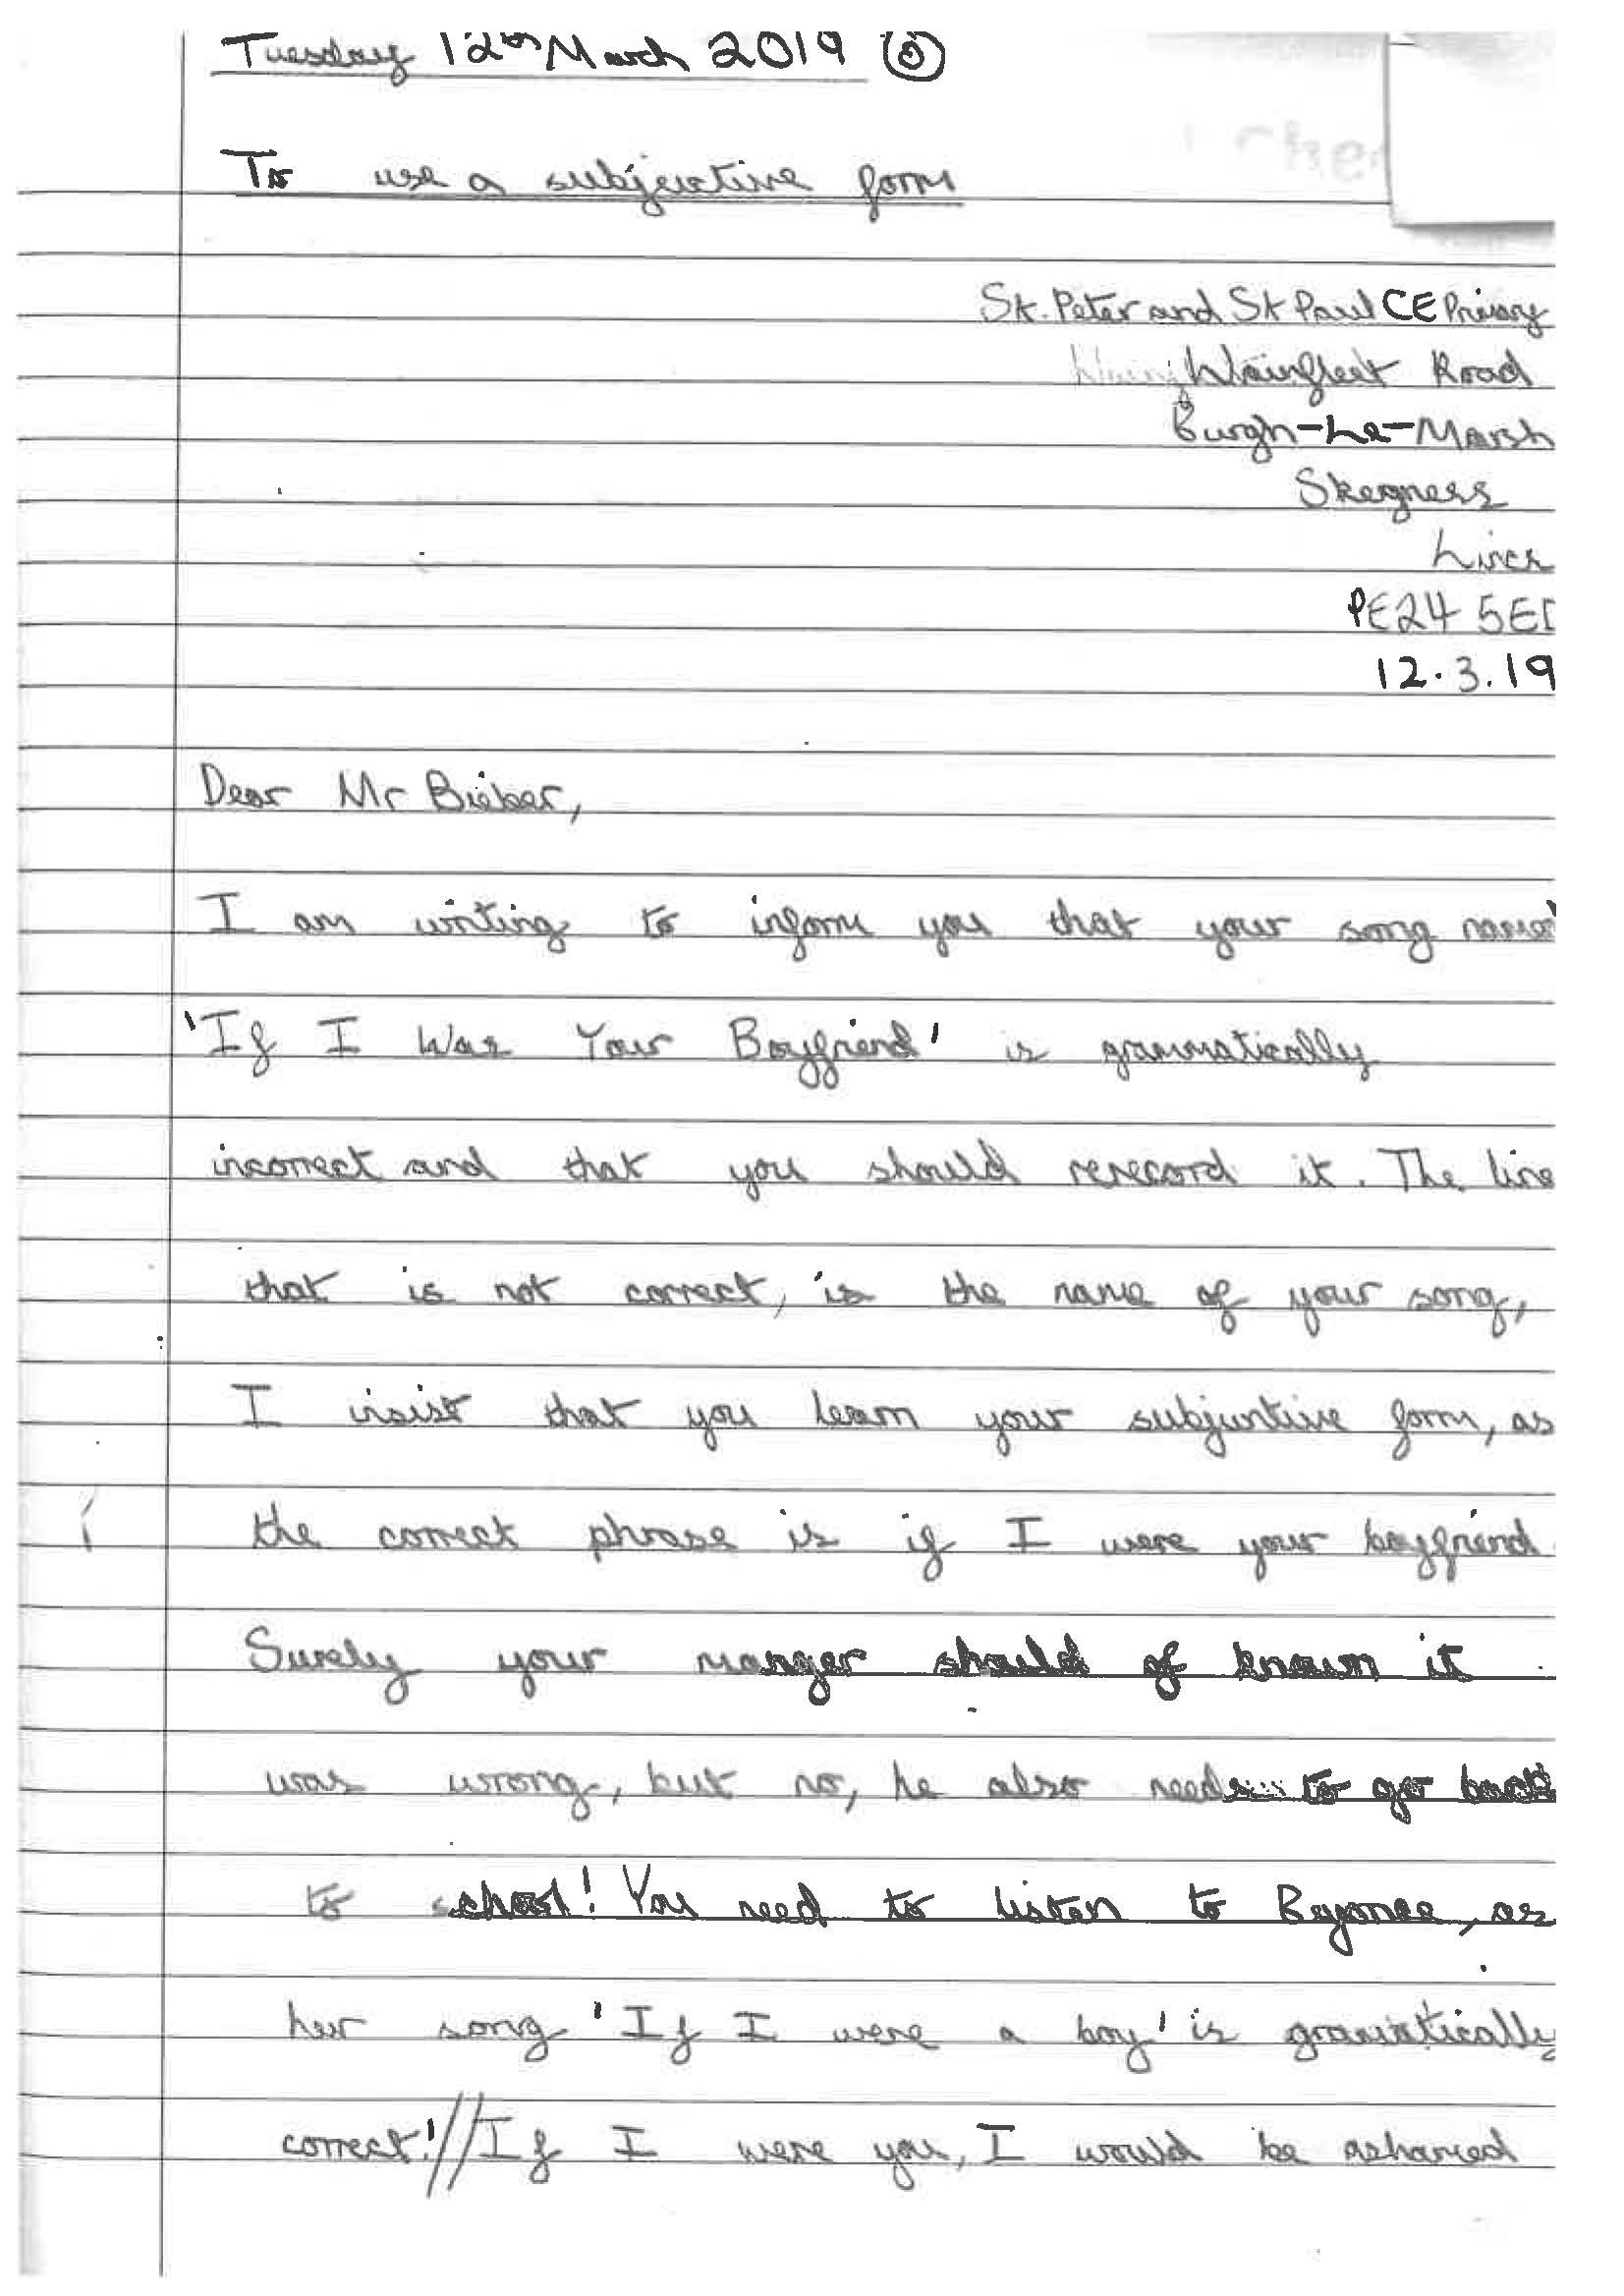 Tuesday 12th March 2019
To use a subjunctive form
St. Peter and St Paul CE Primary
Wainfleet Road
Burgh-Le-Marsh
Skegness
Lincs
PE24 5E
12.3.19
Dear Mr Bieber,
I am writing to inform you that your song named
'If I Was Your Boyfriend' is grammatically
incorrect and that you should rerecord it. The line
that is not correct, is the name of your song,
I insist that you learn your subjuntive form, as
the correct phrase is if I were your boyfriend.
Surely your manger should of known it
was wrong, but no, he also needs to go back
to school! You need to listen to Beyonce, as
her song 'If I were a boy' is gramatically
correct!//If I were you, I would be ashamed